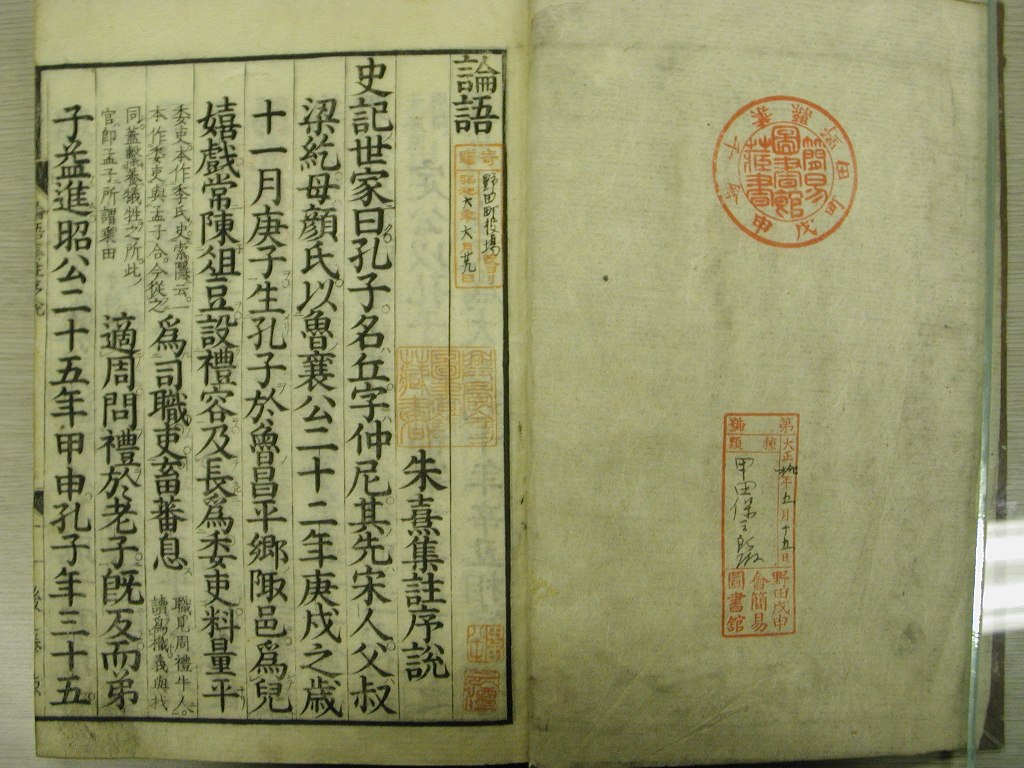 論語
朱熹集註序說
史記世家曰孔子名丘字仲尼其先宋人父叔
梁紇母顏氏以魯襄公二十二年庚戌之歲
十一月庚子生孔子於魯昌平鄉陬邑爲兒
嬉戲常陳俎豆設禮容及長爲委吏料量平
委吏本作季氏史索隱云一
本作委吏與孟子合今從之
爲司職吏畜蕃息
職見周禮牛人
讀爲樴義與杙
同蓋繫養犧牲之所此
官卽孟子所謂乘田
適周問禮於老子旣反而弟
子益進昭公二十五年甲申孔子年三十五
野田町役場
六年六月
簡易
圖書館
藏書
野田戊申
會簡易
圖書館
第
種
類
號
大正
年五月十五日